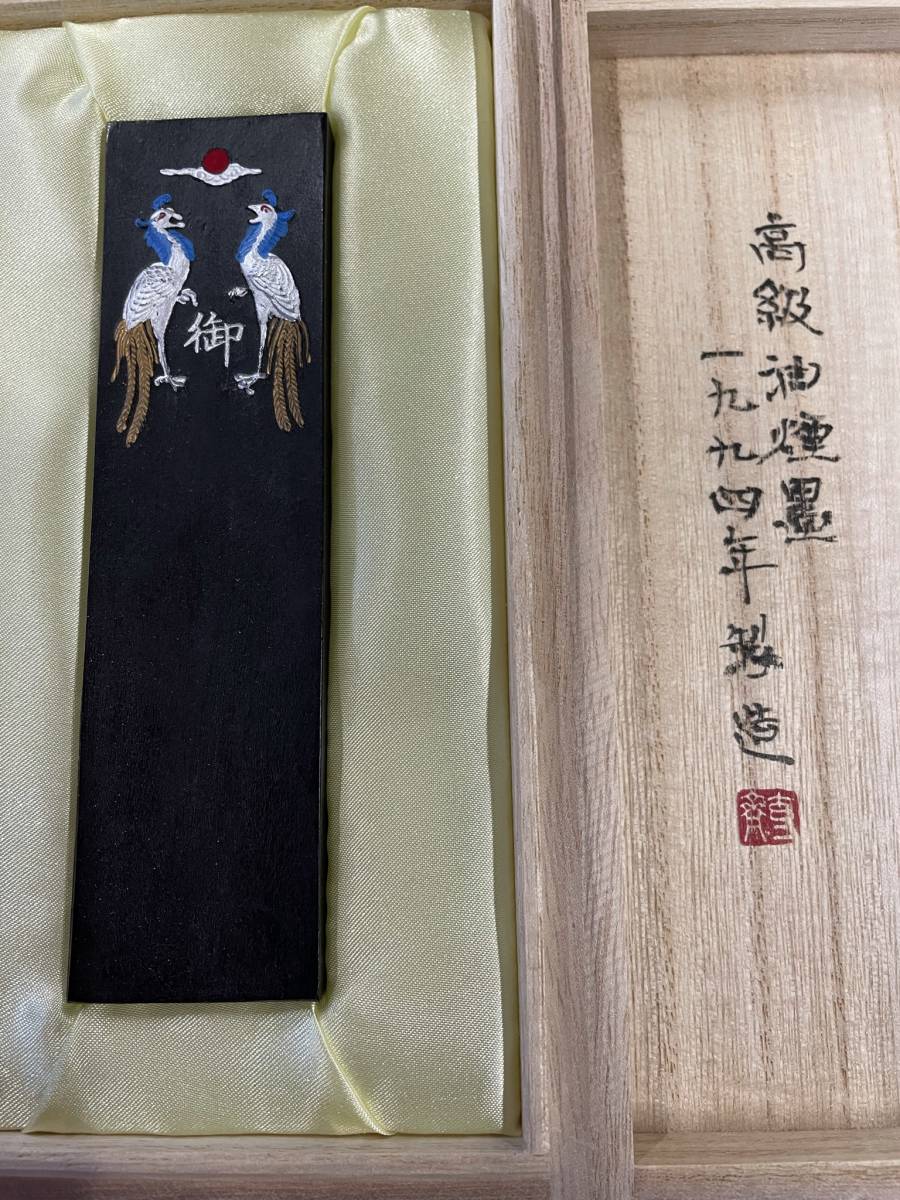 御
高級油煙墨
一九九四年製造